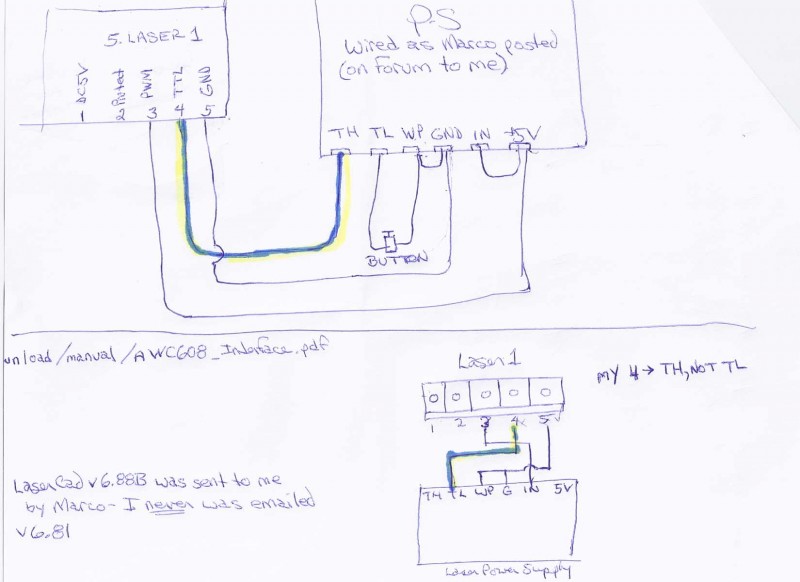 5. LASER 1
1 DC5V
2 Protect
3 PWM
4 TTL
5 GND
P-S
Wired as Marco posted
(on Forum to me)
TH TL WP GND IN +5V
BUTTON
unload/manual/AWC608_Interface.pdf
Laser 1
MY 4 → TH, NOT TL
1 2 3 4 5
LaserCad v6.88B was sent to me
by Marco - I never was emailed
v6.81
TH TL WP G IN 5V
Laser Power Supply